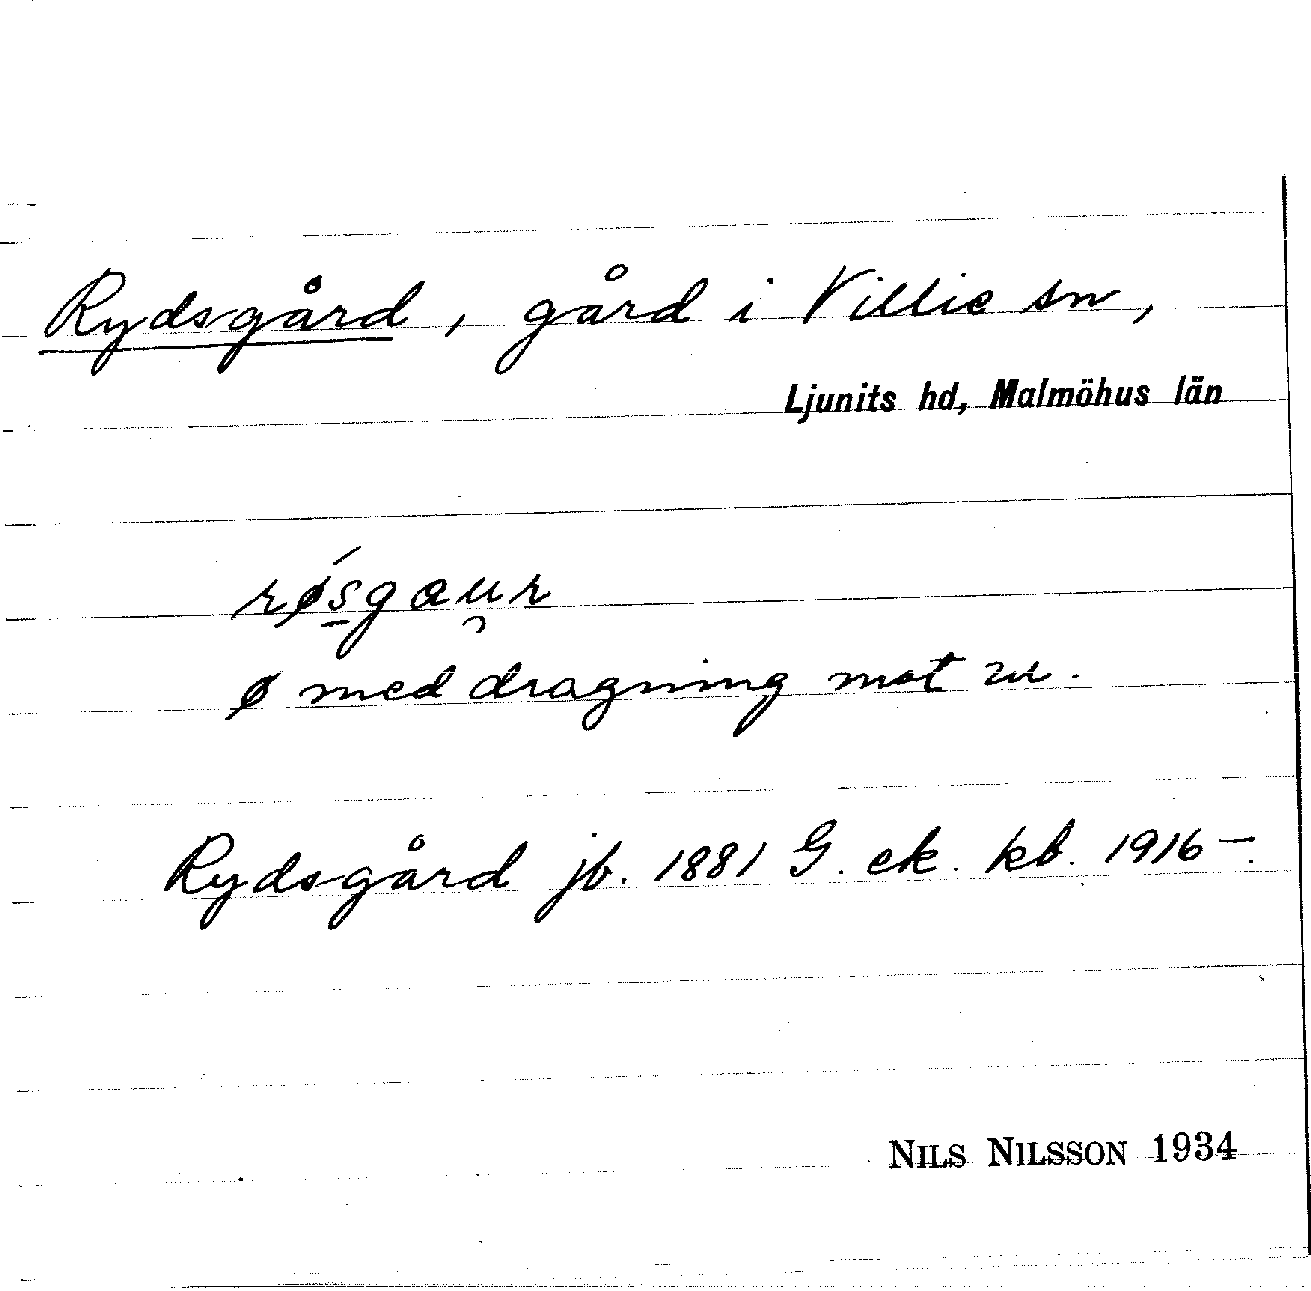 Rydsgård, gård i Villie sn,
Ljunits hd, Malmöhus län
røsgau̯r
ø med dragning mot
Rydsgård jb. 1881 G. ek. kb. 1916–.
NILS NILSSON 1934